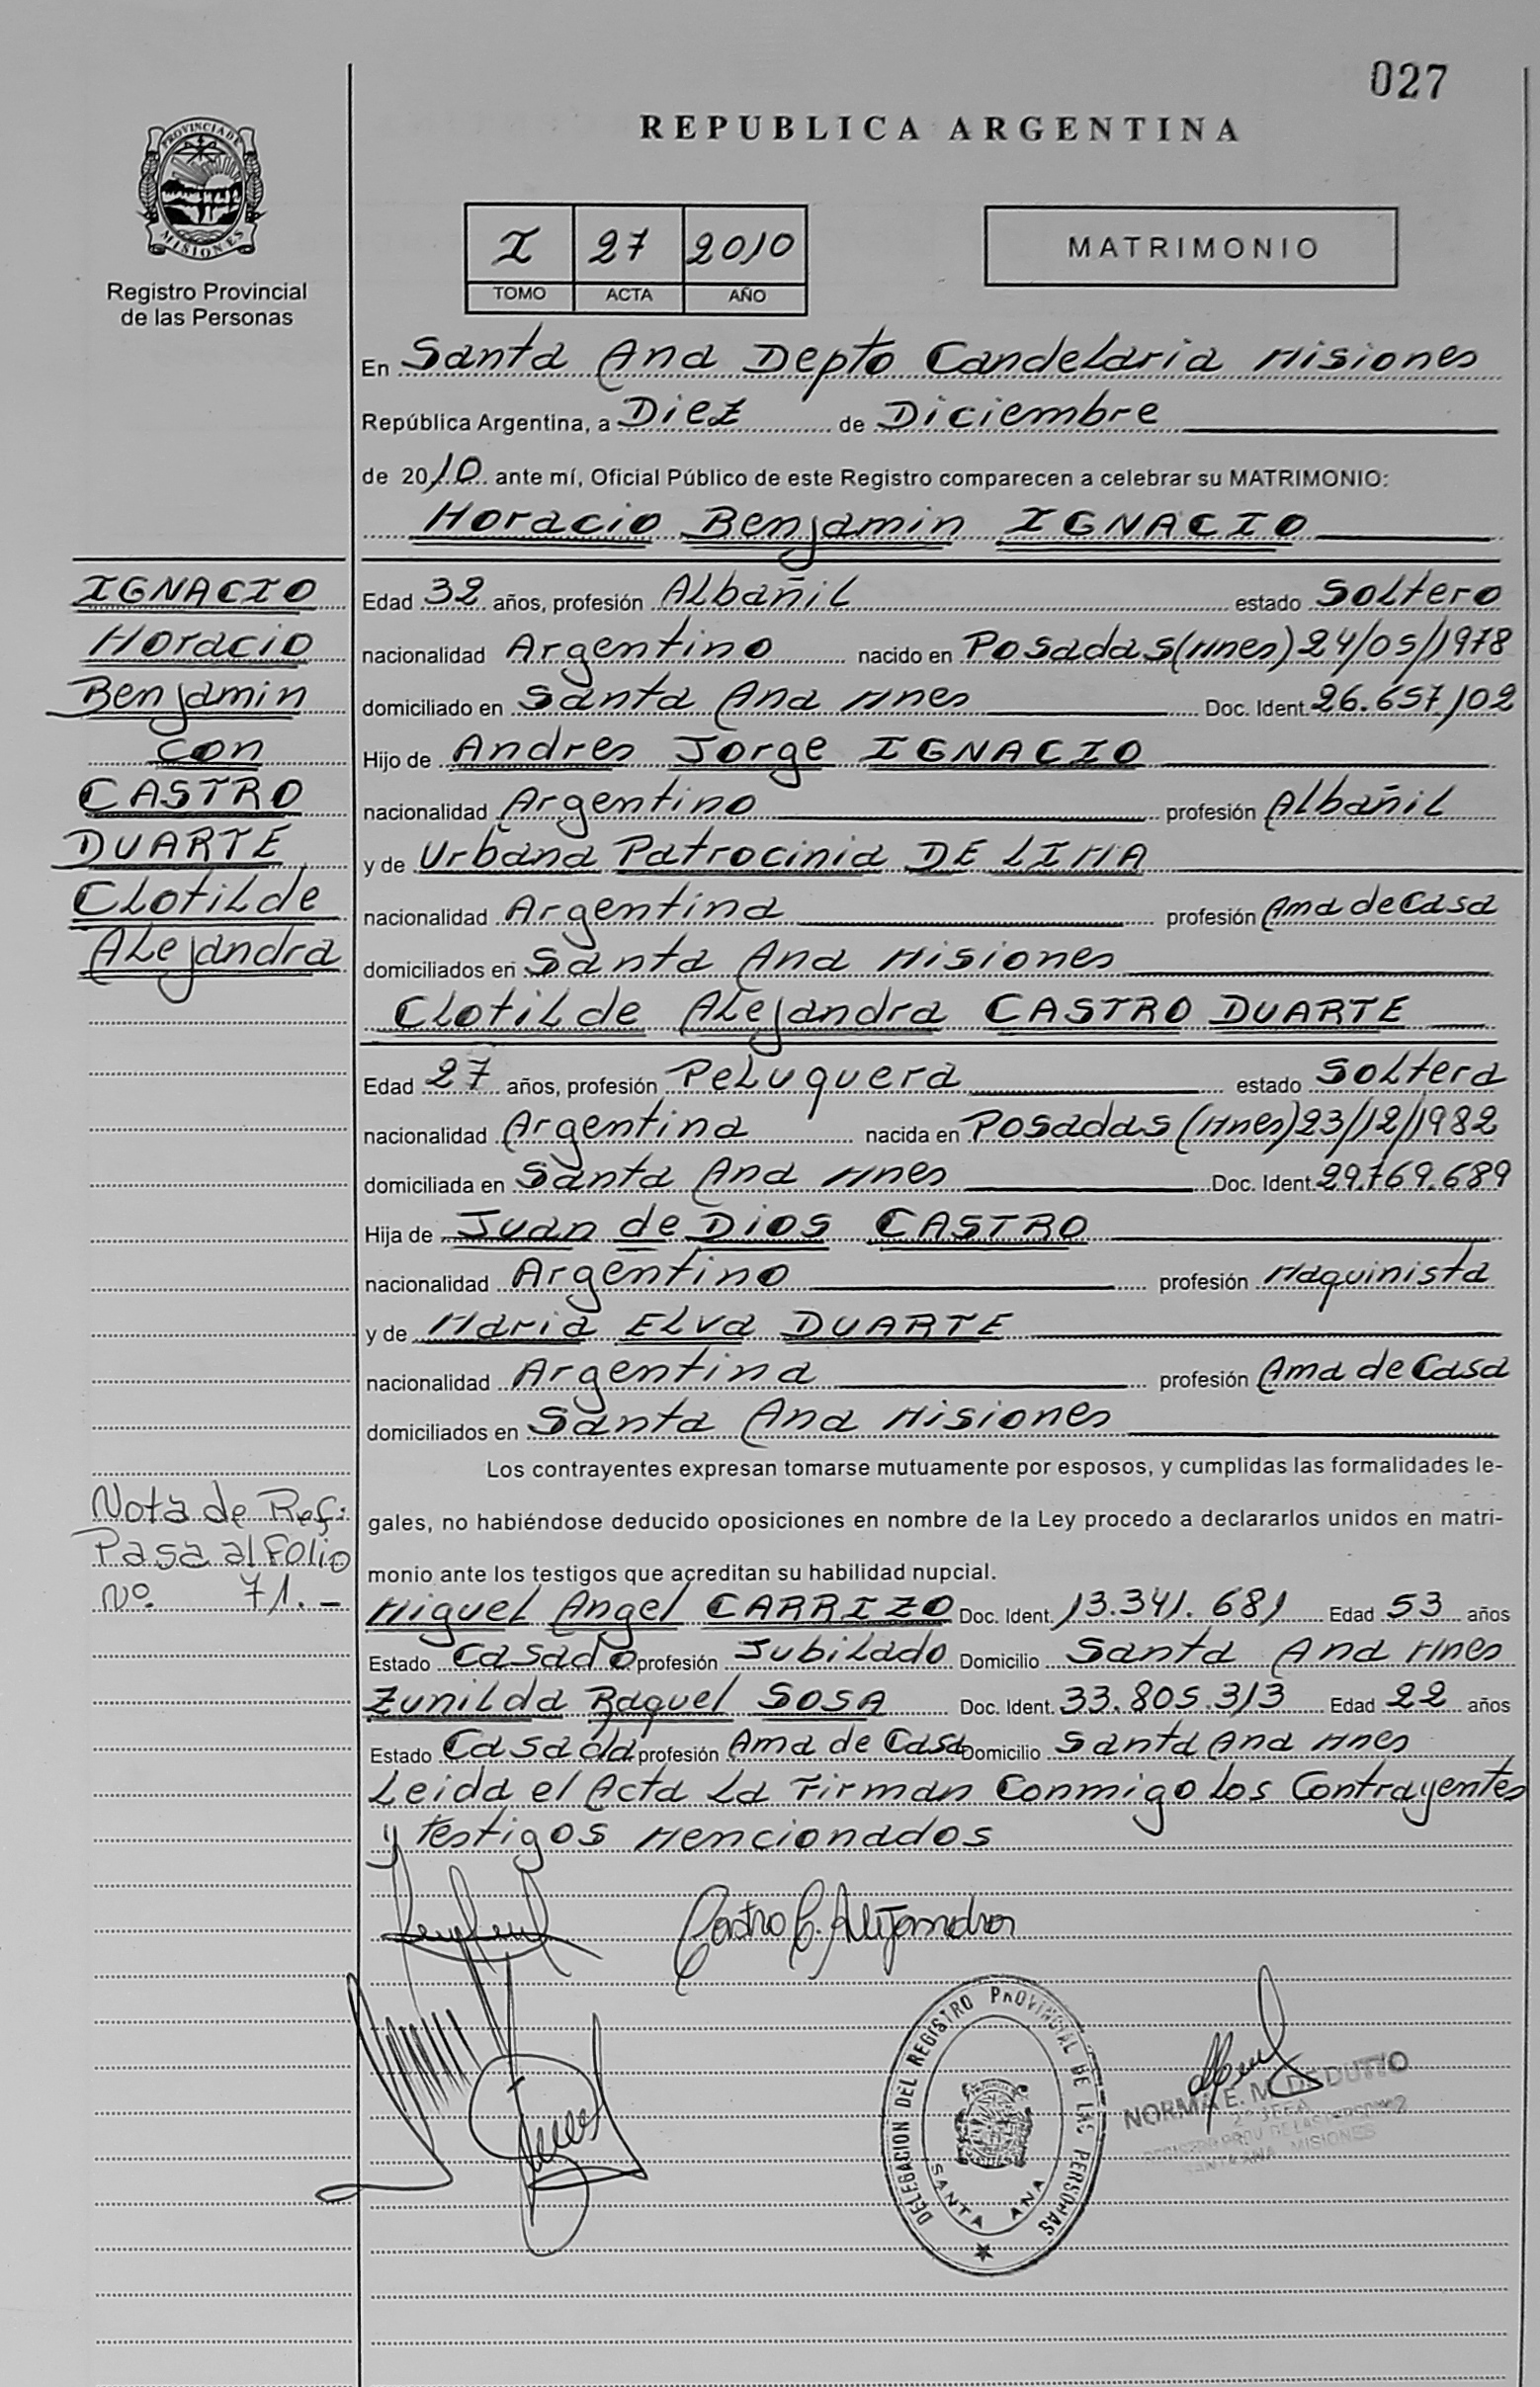 027
REPUBLICA ARGENTINA
PROVINCIA DE
MISIONES
Registro Provincial
de las Personas
I 27 2010
TOMO ACTA AÑO
MATRIMONIO
En Santa Ana Depto Candelaria Misiones
República Argentina, a Diez de Diciembre
de 2010 ante mí, Oficial Público de este Registro comparecen a celebrar su MATRIMONIO:
Horacio Benjamin IGNACIO
IGNACIO
Horacio
Benjamin
con
CASTRO
DUARTE
Clotilde
Alejandra
Edad 32 años, profesión Albañil estado Soltero
nacionalidad Argentino nacido en Posadas (Mnes) 24/05/1978
domiciliado en Santa Ana Mnes Doc. Ident. 26.657.102
Hijo de Andres Jorge IGNACIO
nacionalidad Argentino profesión Albañil
y de Urbana Patrocinia DE LIMA
nacionalidad Argentina profesión Ama de Casa
domiciliados en Santa Ana Misiones
Clotilde Alejandra CASTRO DUARTE
Edad 27 años, profesión Peluquera estado Soltera
nacionalidad Argentina nacida en Posadas (Mnes) 23/12/1982
domiciliada en Santa Ana Mnes Doc. Ident. 29.769.689
Hija de Juan de Dios CASTRO
nacionalidad Argentino profesión Maquinista
y de Maria Elva DUARTE
nacionalidad Argentina profesión Ama de Casa
domiciliados en Santa Ana Misiones
Los contrayentes expresan tomarse mutuamente por esposos, y cumplidas las formalidades le-
gales, no habiéndose deducido oposiciones en nombre de la Ley procedo a declararlos unidos en matri-
monio ante los testigos que acreditan su habilidad nupcial.
Nota de Ref:
Pasa al Folio
Nº. 71.-
Miguel Angel CARRIZO Doc. Ident. 13.341.681 Edad 53 años
Estado Casado profesión Jubilado Domicilio Santa Ana Mnes
Zunilda Raquel SOSA Doc. Ident. 33.805.313 Edad 22 años
Estado Casada profesión Ama de Casa Domicilio Santa Ana Mnes
Leida el Acta La Firman Conmigo los Contrayentes
y testigos Mencionados
Castro C. Alejandra
DELEGACION DEL REGISTRO PROVINCIAL DE LAS PERSONAS
SANTA ANA
NORMA E. M. DUTTO
JEFA
REGISTRO PROV. DE LAS PERSONAS
SANTA ANA MISIONES